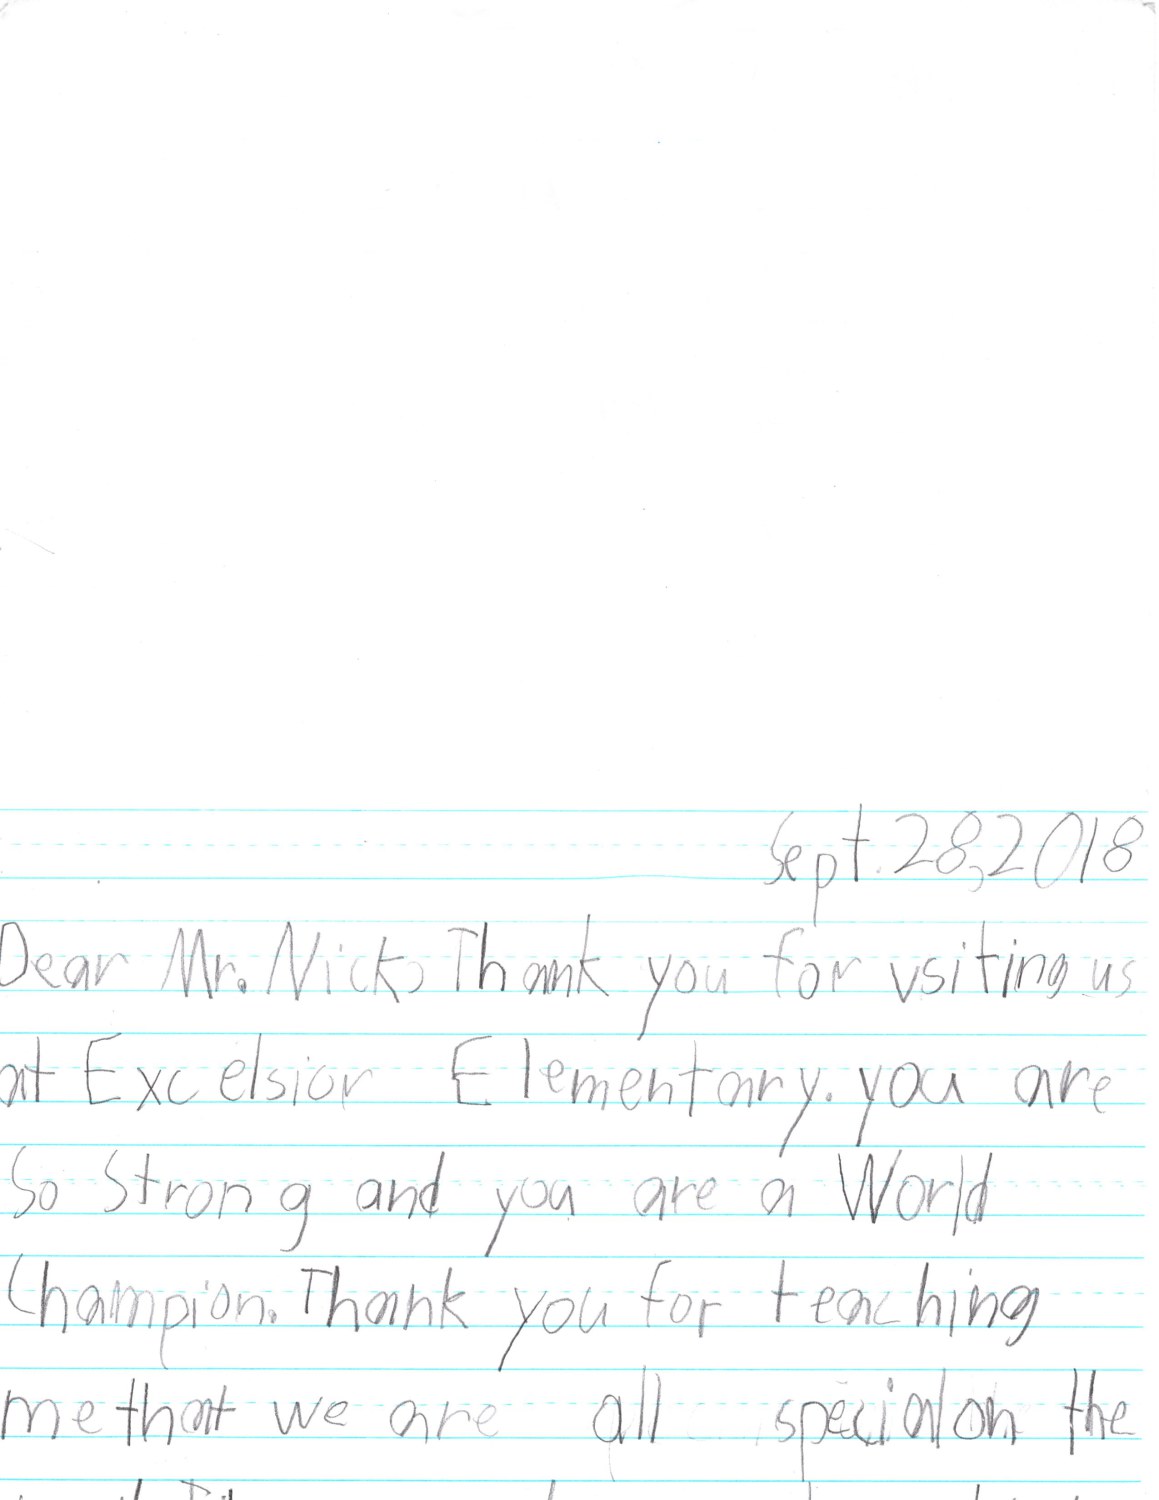 Sept. 28, 2018
Dear Mr. Nick, Thank you for vsiting us
at Excelsior Elementary. you are
So Strong and you are a World
Champion. Thank you for teaching
me that we are all special on the